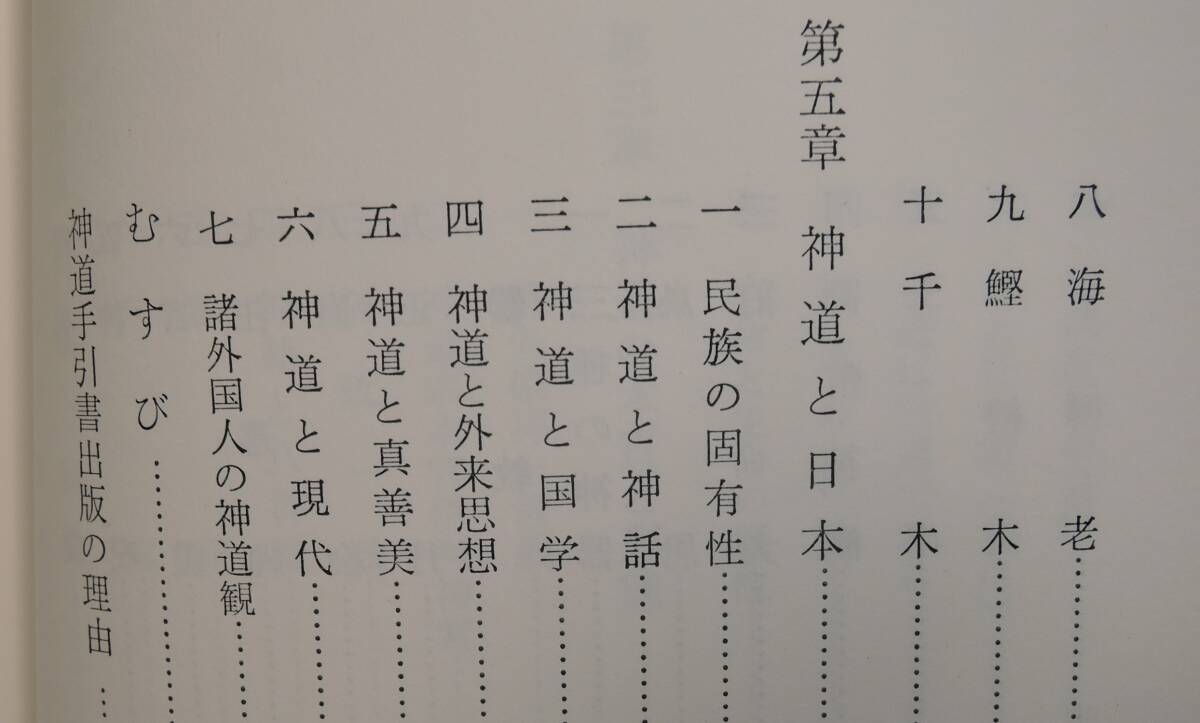 八 海老……
九 鰹木……
十 千木……
第五章 神道と日本……
一 民族の固有性……
二 神道と神話……
三 神道と国学……
四 神道と外来思想……
五 神道と真善美……
六 神道と現代……
七 諸外国人の神道観……
むすび……
神道手引書出版の理由……